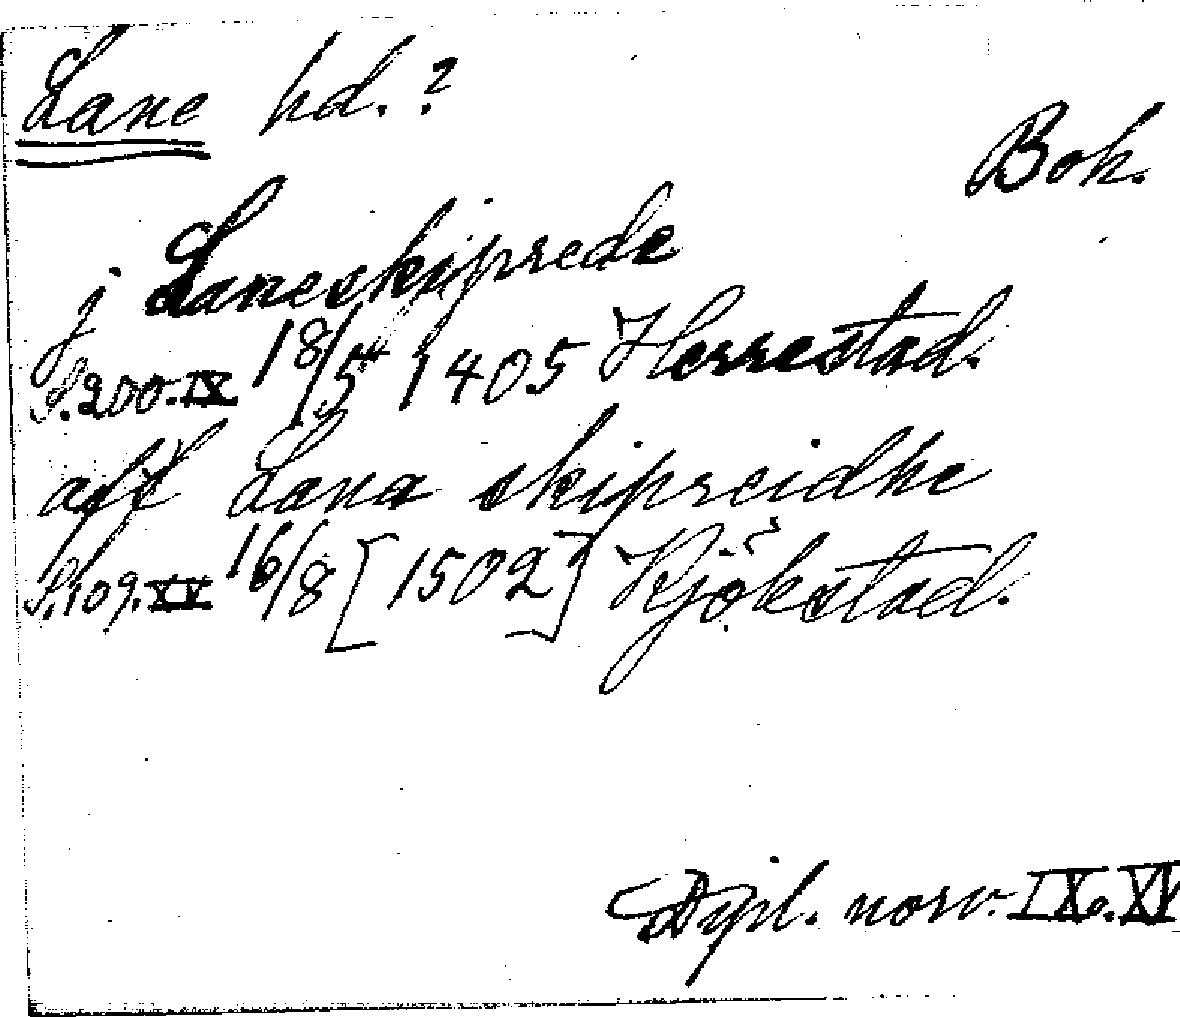 Lane hd.?
Boh.
j Laneskiprede
S. 200. IX 18/5 1405 Herrestad.
aff Lana skipreidhe
S. 109. XV 16/8 [1502] Kjökstad.
Dipl. norv. IX o. XV